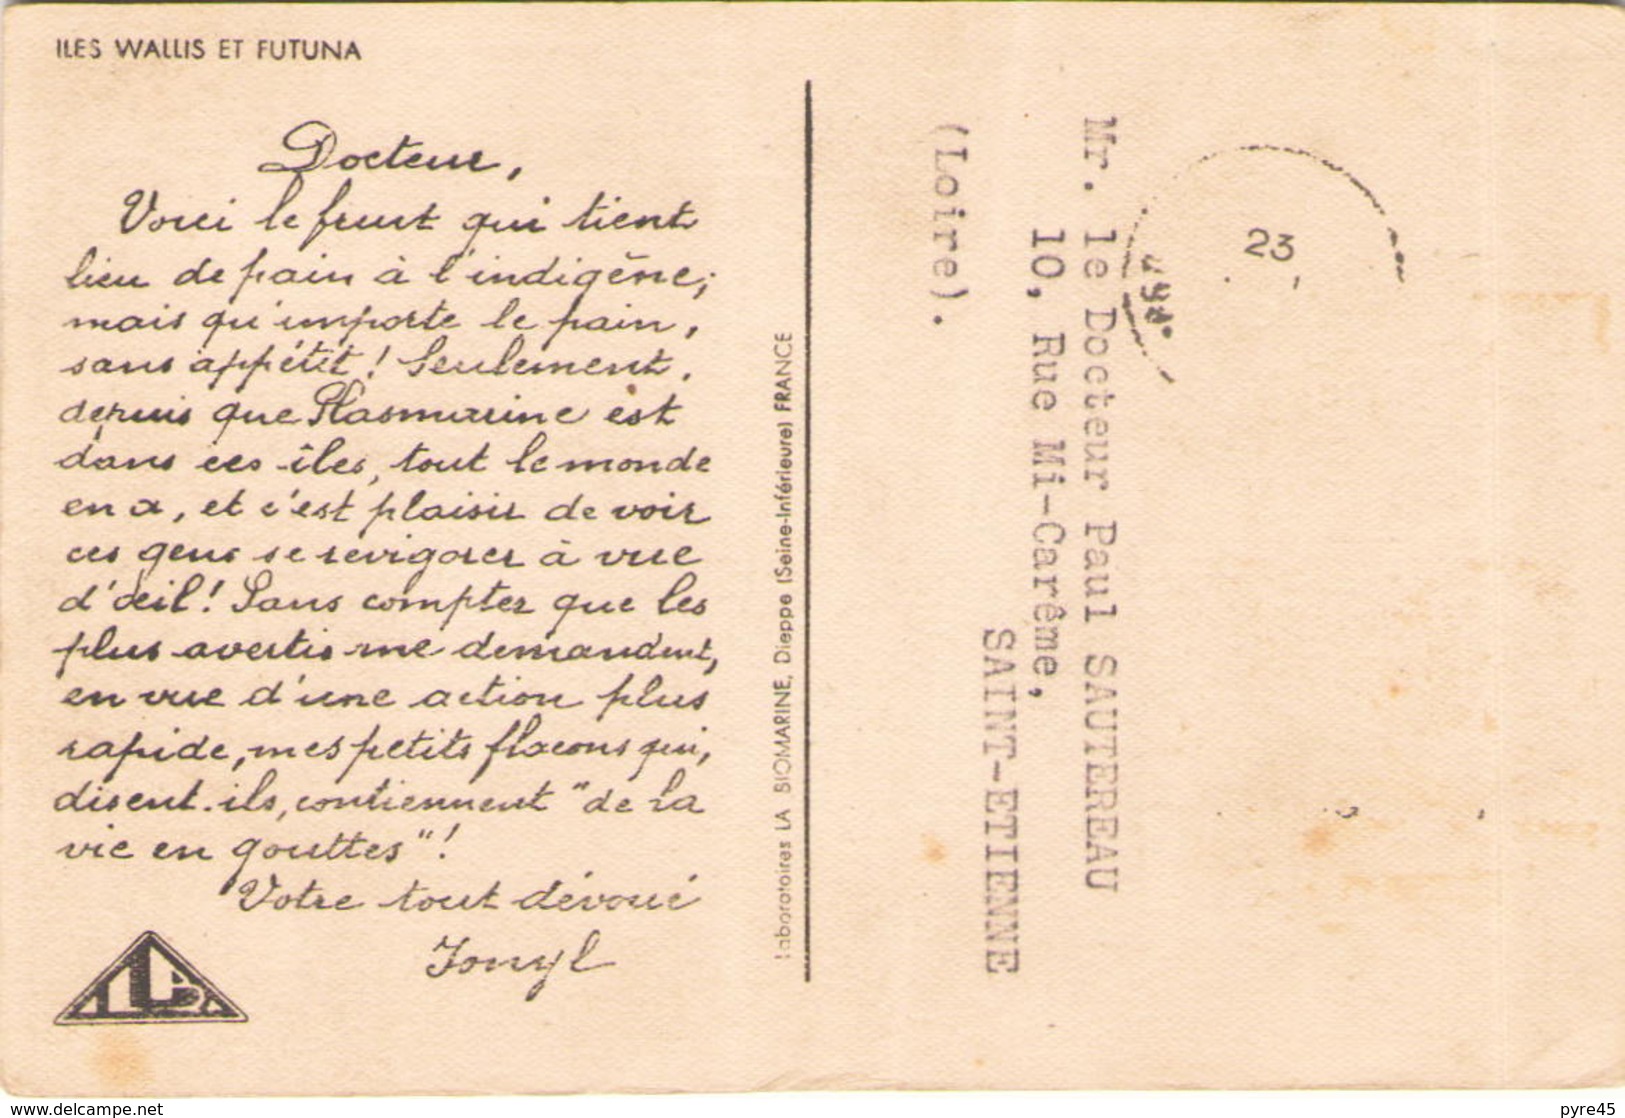 ILES WALLIS ET FUTUNA
Docteur,
Voici le fruit qui tient
lieu de pain à l'indigène;
mais qu'importe le pain,
sans appétit! Seulement,
depuis que Plasmarine est
dans ces îles, tout le monde
en a, et c'est plaisir de voir
ces gens se revigorer à vue
d'œil! Sans compter que les
plus avertis me demandent,
en vue d'une action plus
rapide, mes petits flacons qui,
disent-ils, contiennent "de la
vie en gouttes"!
Votre tout dévoué
Ionyl
Laboratoires LA BIOMARINE, Dieppe (Seine-Inférieure) FRANCE
Mr. le Docteur Paul SAUTEREAU
10, Rue Mi-Carême,
SAINT-ETIENNE
(Loire).
23
delcampe.net
pyre45